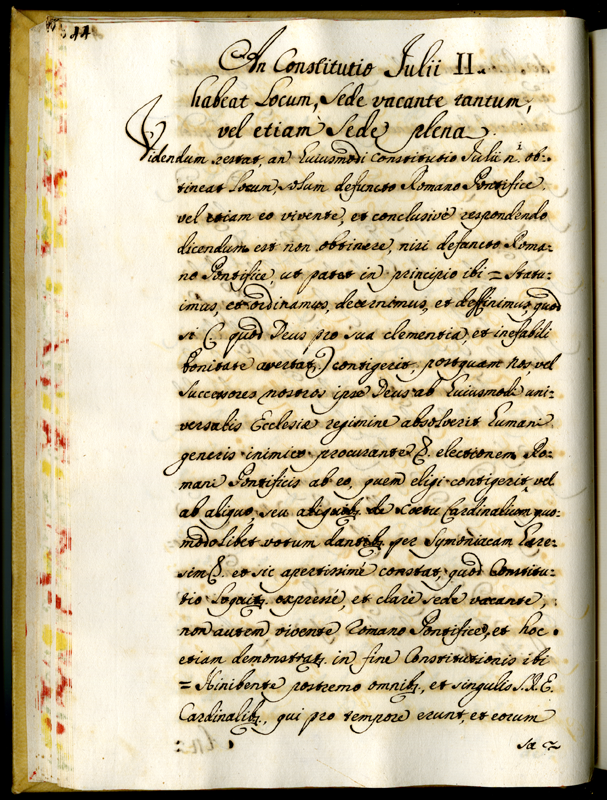 544
An Constitutio Julii II.
habeat Locum, Sede vacante tantum,
vel etiam Sede plena.
Videndum restat, an huiusmodi constitutio Julii 2.i ob-
tineat Locum, solum defuncto Romano Pontifice,
vel etiam eo vivente, et conclusivè respondendo
dicendum est non obtinere, nisi defuncto Roma-
no Pontifice, ut patet in principio ibi = Statu-
imus, et ordinamus, decernimus, et deffinimus, quod
si (quod Deus pro sua clementia, et inefabili
bonitate avertat) contigerit, postquam nos, vel
Successores nostros ipse Deus ab huiusmodi uni-
versalis Ecclesiæ regimine absolverit humani
generis inimico procurante &. electionem Ro-
mani Pontificis ab eo, quem eligi contigerit, vel
ab aliquo, seu aliquib; de Coetu Cardinalium quo-
modolibet votum dantib; per Symoniacam hære-
sim &. et sic apertissimè constat, quod Constitu-
tio Loquit; expressè, et clarè sede vacante,
non autem vivente Romano Pontifice, et hoc
etiam demonstrat; in fine Constitutionis ibi
= Inhibente postremo omnib;, et singulis S.R.E.
Cardinalib;, qui pro tempore erunt, et eorum